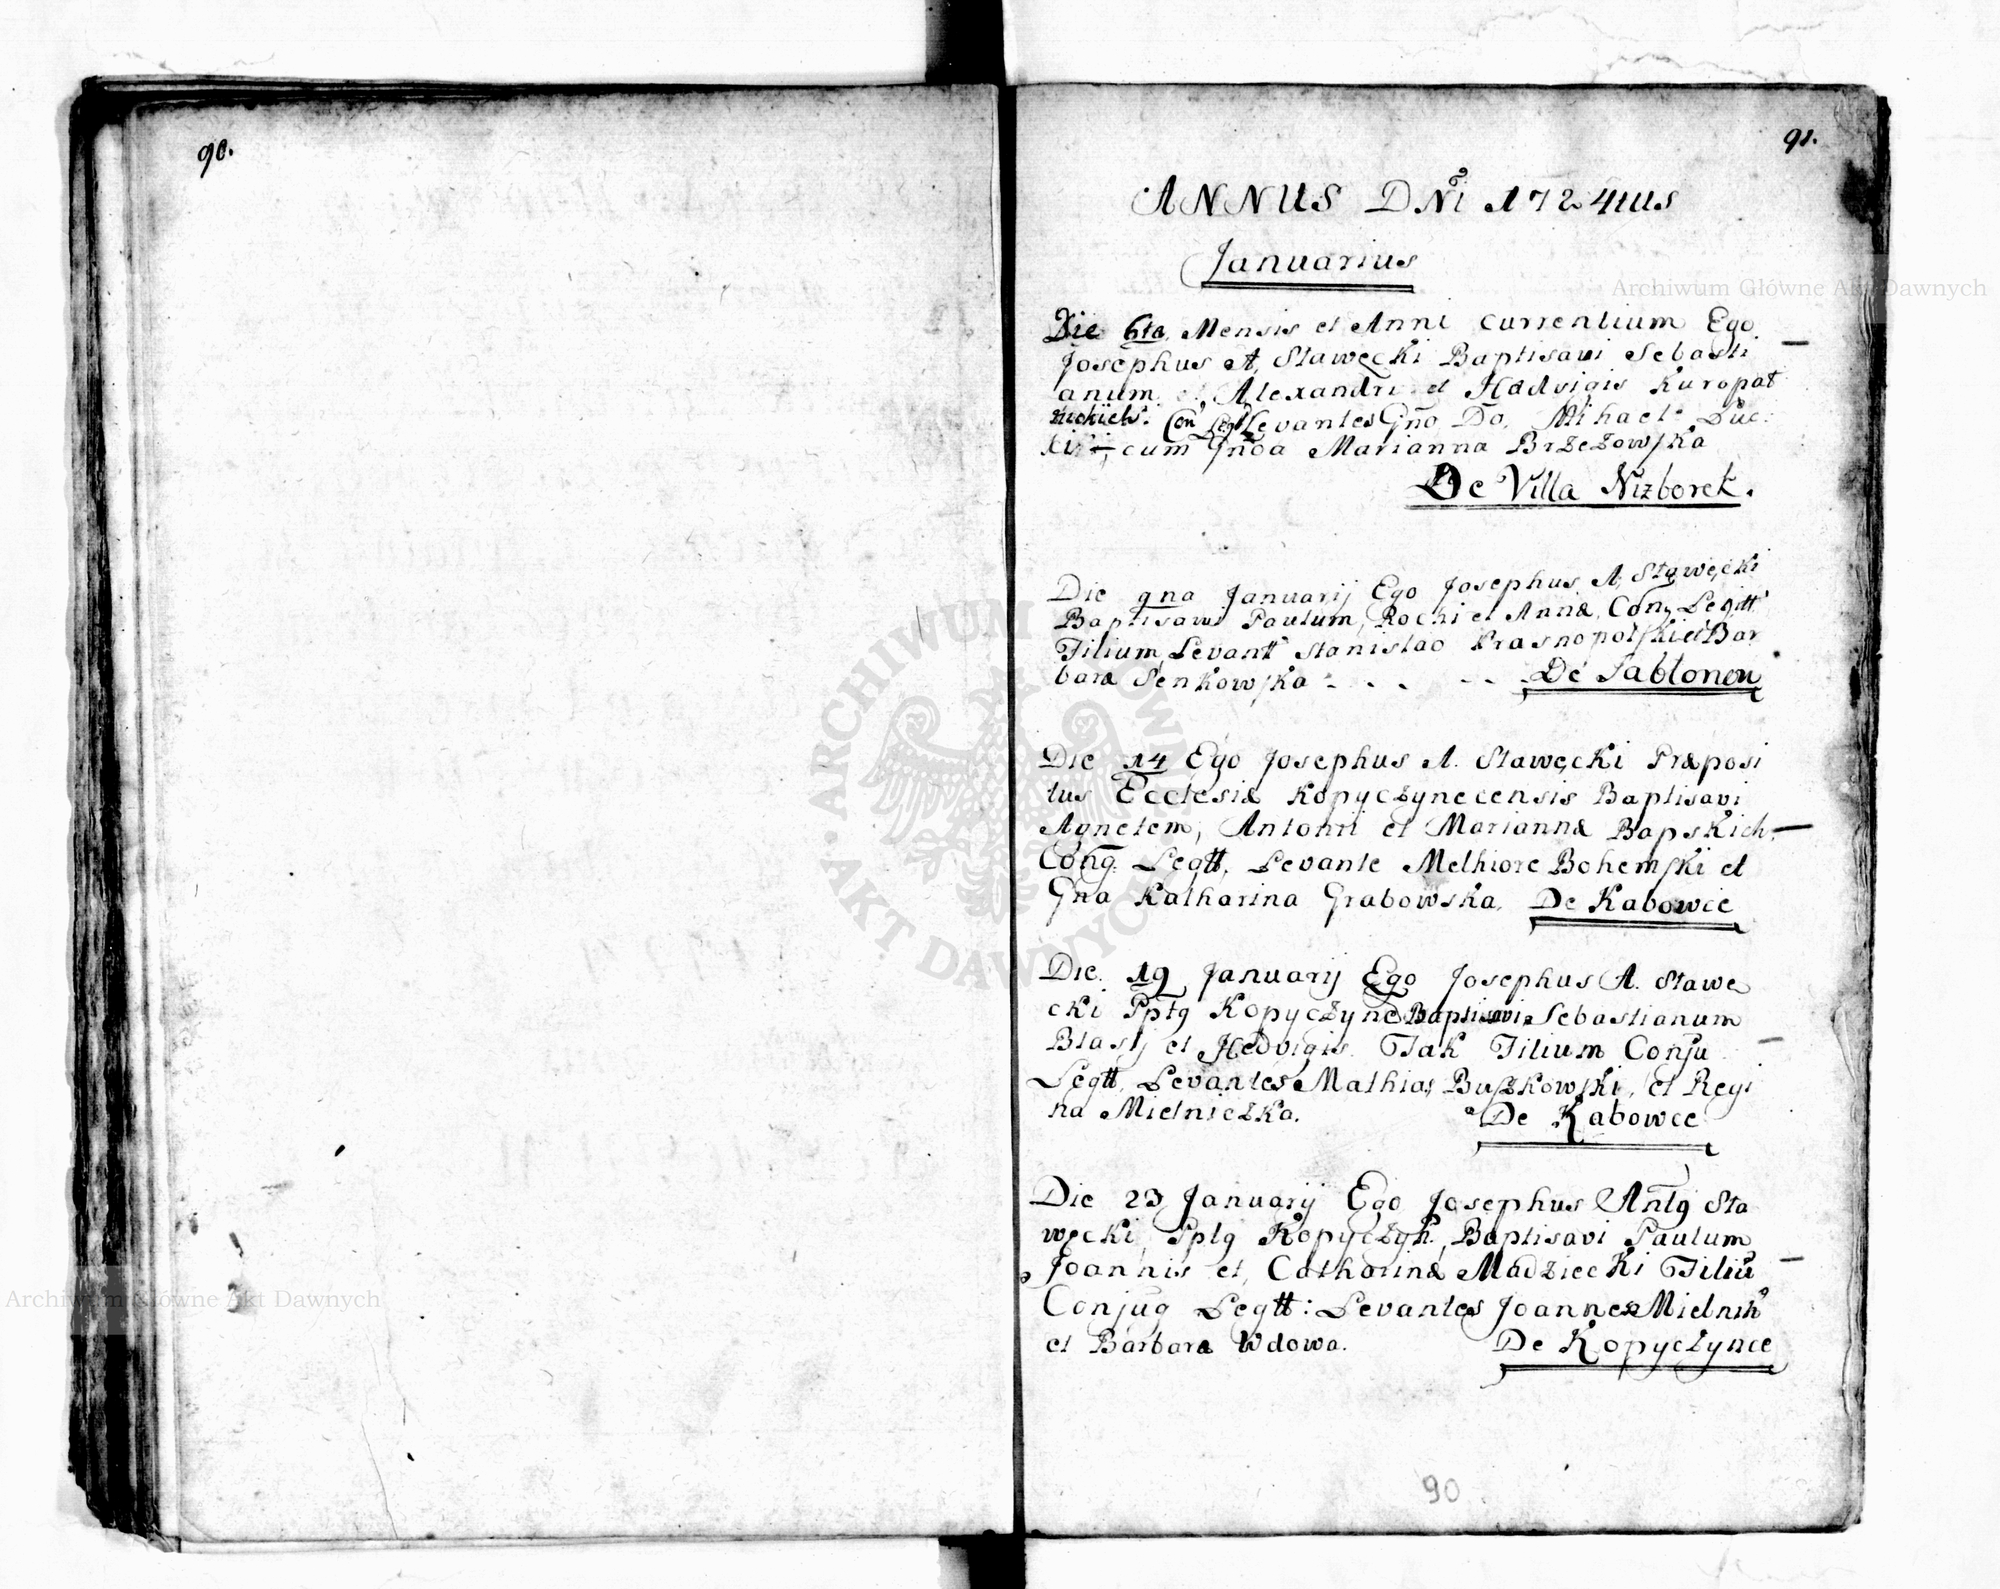 90.
91.
ANNUS DNĨ 1724tus
Januarius
Die 6ta Mensis et Anni currentium Ego
Josephus A, Stawęcki Baptisavi Sebasti
anum Alexandri et Hedvigis Kuropat
nickich: Con Legtt Levantes Gño Do, Mihael Duc:
cum Gnõa Marianna Brzezowska
De Villa Nizborek.
Die 9na Januarij Ego Josephus A, Stawęcki
Baptisavi Paulum, Rochi et Annæ, Con, Legitt
Filium, Levantt Stanislao Krasnopolski et Bar
bara Senkowska - . . - - De Jabłonow
Die 14 Ego Josephus A. Stawęcki Præposi
tus Ecclesiæ Kopyczynecensis Baptisavi
Agnetem, Antonii et Mariannæ Bapskich.
Cong. Legtt, Levante Melhiore Bohemski et
Gna Katharina Grabowska, De Kabowce
Die. 19 Januarij Ego Josephus A. Stawe
cki Pptg Kopyczyne Baptisavi Sebastianum
Blasij et Hedvigis Ptak Filium Conju
Legtt, Levantes Mathias Buszkowski, et Regi
na Mielniczka. De Kabowce
Die 23 Januarij Ego Josephus Antg Sta
węcki, Pptg Kopyczyń. Baptisavi Paulum
Joannis et, Catharinæ Madziecki Filiũ
Conjug Legtt: Levantes Joannes Mielnik
et Barbara Wdowa. De Kopyczynce
90
ARCHIWUM GŁÓWNE AKT DAWNYCH
Archiwum Główne Akt Dawnych
Archiwum Główne Akt Dawnych